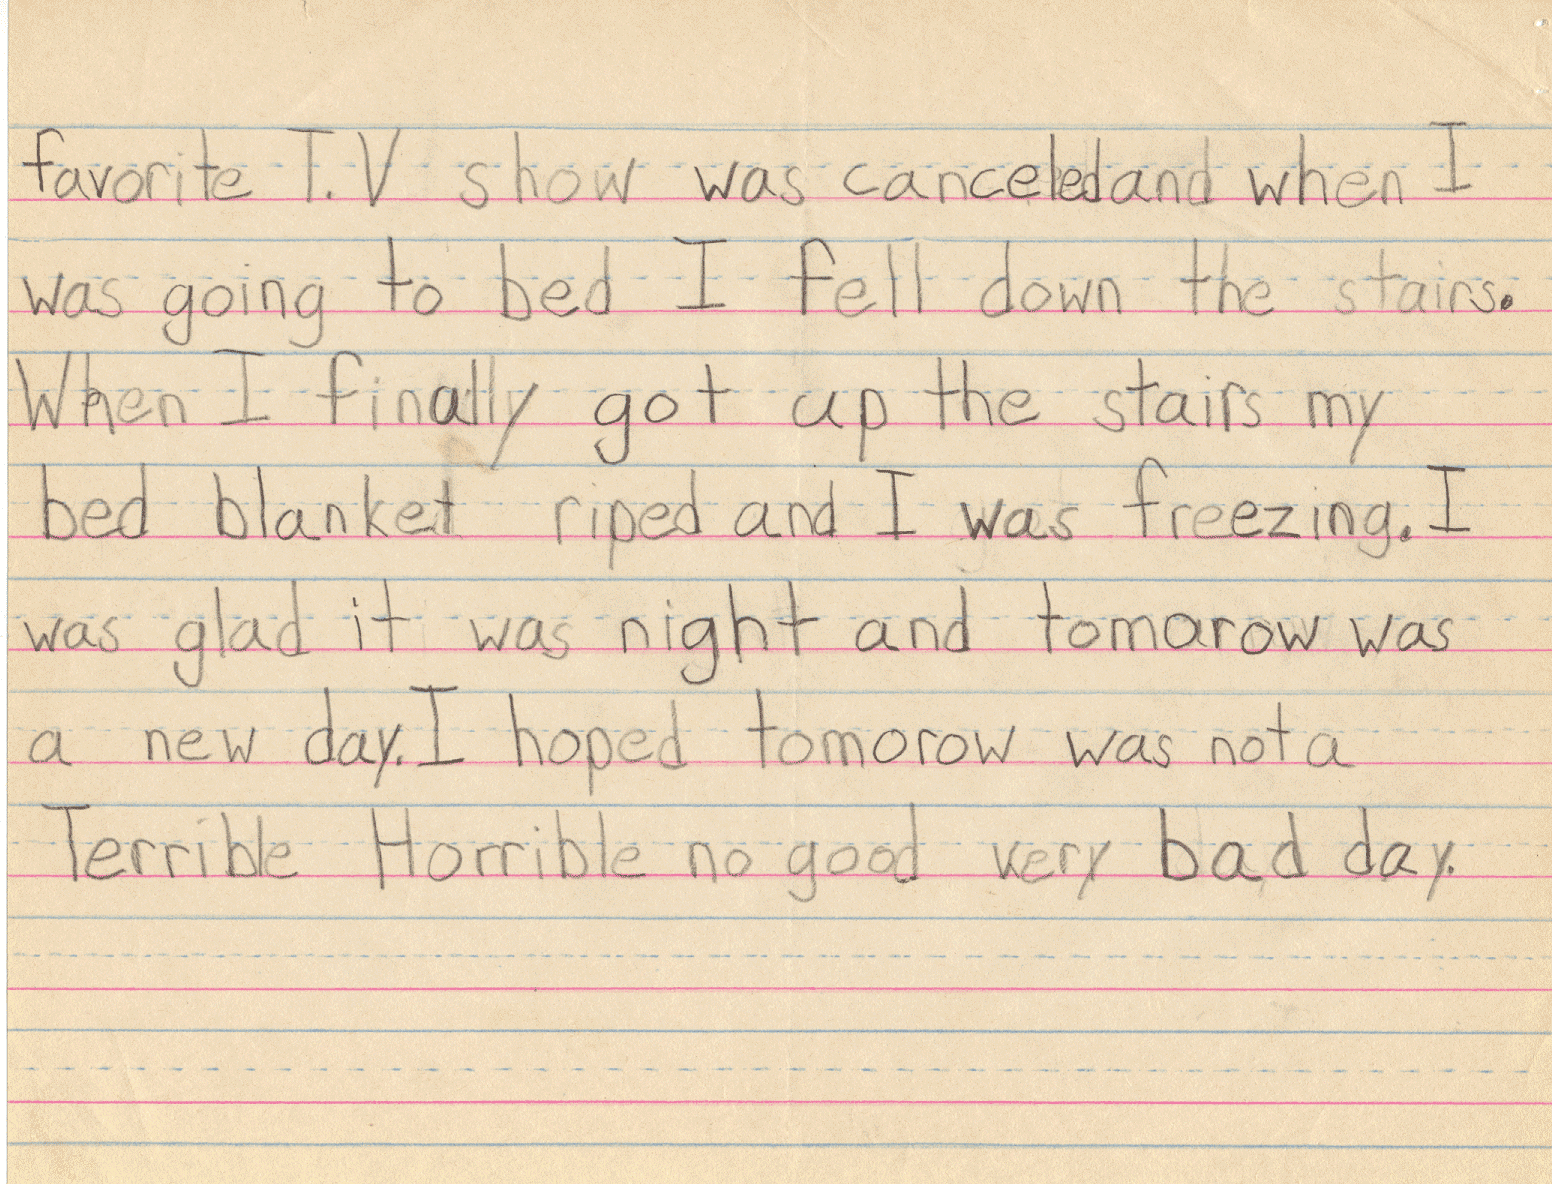 favorite T.V show was canceled and when I
was going to bed I fell down the stairs.
When I finally got up the stairs my
bed blanket riped and I was freezing. I
was glad it was night and tomarow was
a new day. I hoped tomorow was not a
Terrible Horrible no good very bad day.